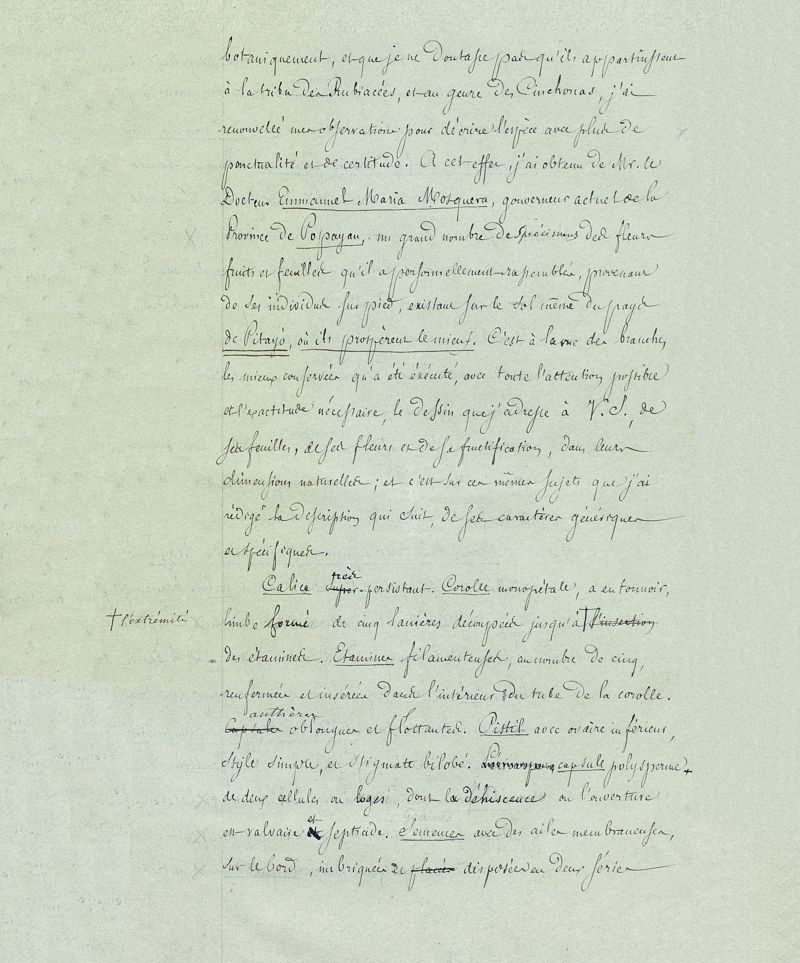 botaniquement, et que je ne doutasse pas qu'ils appartinssent
à la tribu des Rubiacées, et au genre des Cinchonas, j'ai
renouvelé mes observations pour décrire l'espèce avec plus de
ponctualité et de certitude. A cet effet, j'ai obtenu de Mr. le
Docteur Emmanuel Maria Mosquera, gouverneur actuel de la
Province de Popayan, un grand nombre de spécimens des fleurs
fruits et feuilles qu'il a personnellement rassemblés, provenant
de ses individus sur pied, existant sur le sol même du pays
de Pitayó, où ils prospèrent le mieux. C'est à la vue des branches
les mieux conservées qu'a été éxécuté, avec toute l'attention possible
et l'exactitude nécessaire, le dessin que j'adresse à V. S., de
ses feuilles, de ses fleurs et de sa fructification, dans leurs
dimensions naturelles ; et c'est sur ces mêmes sujets que j'ai
rédigé la description qui suit, de ses caractères génériques
et spécifiques.
Calice très persistant. Corolle monopétale, a entonnoir,
† l'extrémité
limbe formé de cinq lanières découpées jusqu'à † l'insertion
des étamines. Etamines filamenteuses, au nombre de cinq,
renfermées et insérées dans l'intérieur du tube de la corolle.
anthères
Capsules oblongues et flottantes. Pistil avec ovaire inférieur,
style simple, et stigmate bilobé. capsule polysperme
de deux cellules ou loges, dont la déhiscence ou l'ouverture
est valvaire et septicide. Semences avec des ailes membraneuses,
sur le bord, imbriquées et placées disposées en deux séries